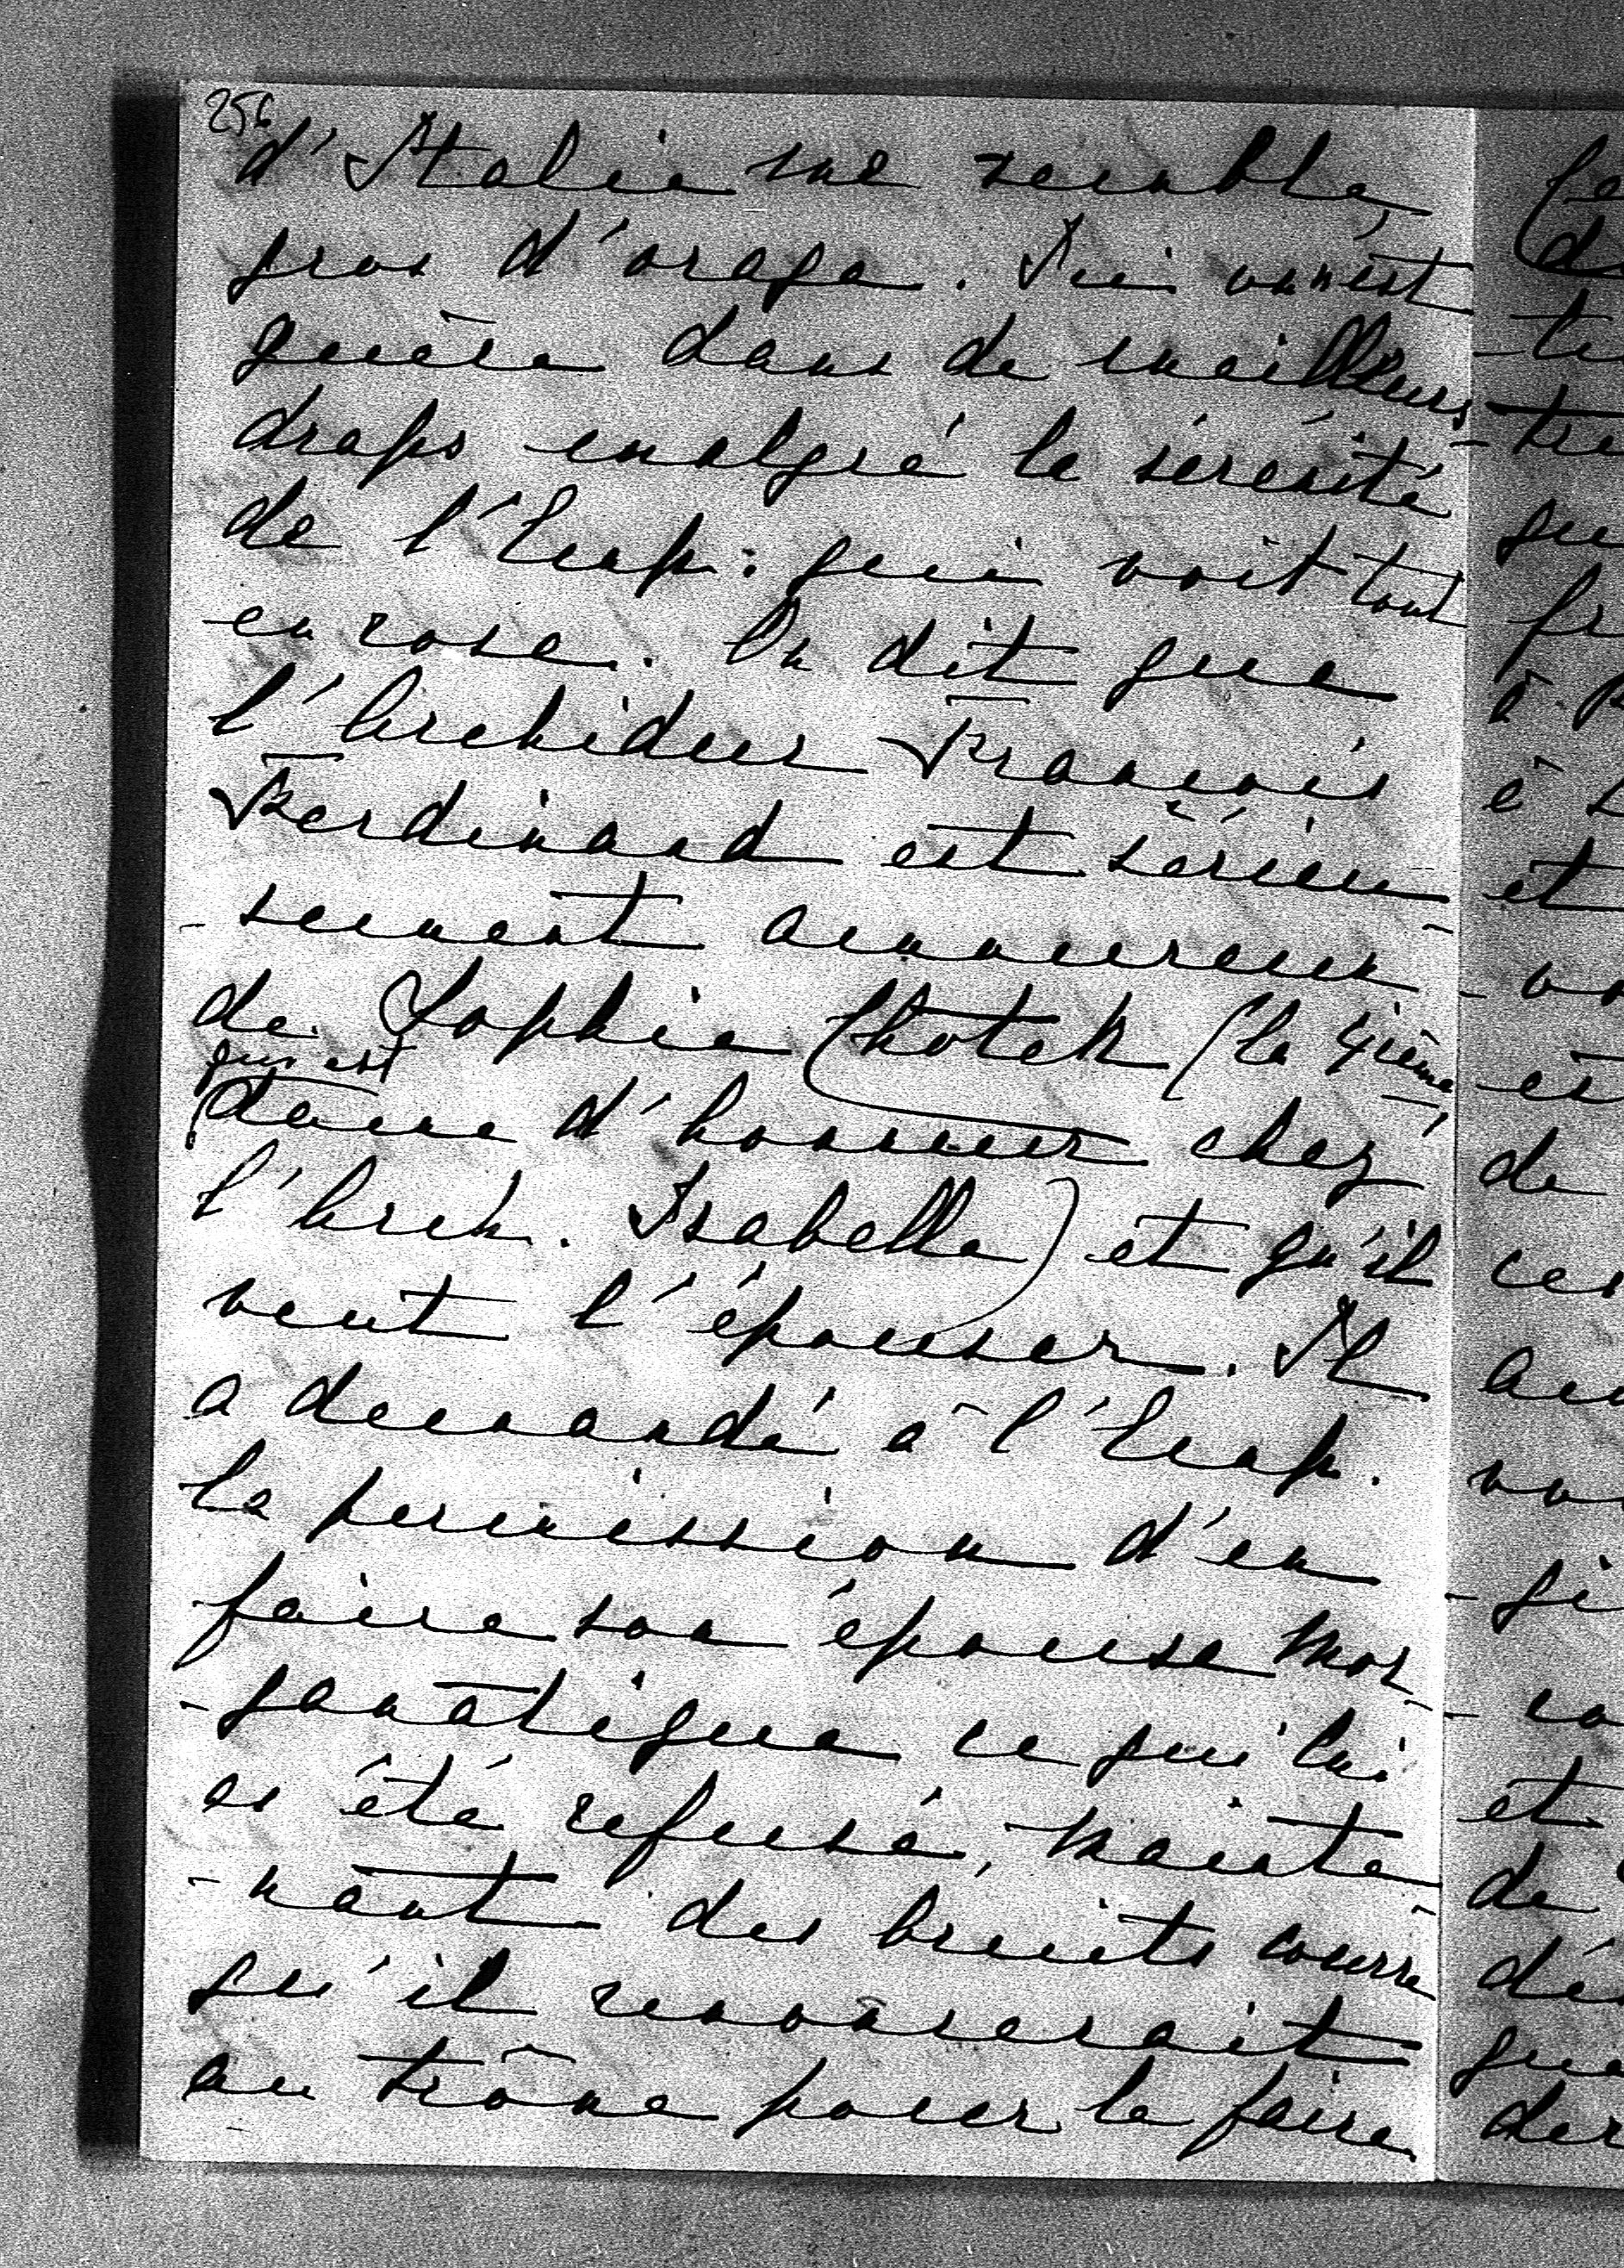 256
d'Italie me semble,
gros d'orage. Ici on n'est
guère dans de meilleurs
draps malgré la sérénité
de l'Emp: qui voit tout
en rose. On dit que
l'Archiduc François
Ferdinand est sérieu-
-sement amoureux
de Sophie Chotek (la 4ième,
qui est
dame d'honneur chez
l'Arch. Isabelle) et qu'il
veut l'épouser. Il
a demandé à l'Emp.
la permission d'en
faire son épouse mor-
-ganatique ce qui lui
a été refusé, mainte-
-nant des bruits courre
qu'il renoncerait
au trône pour le faire